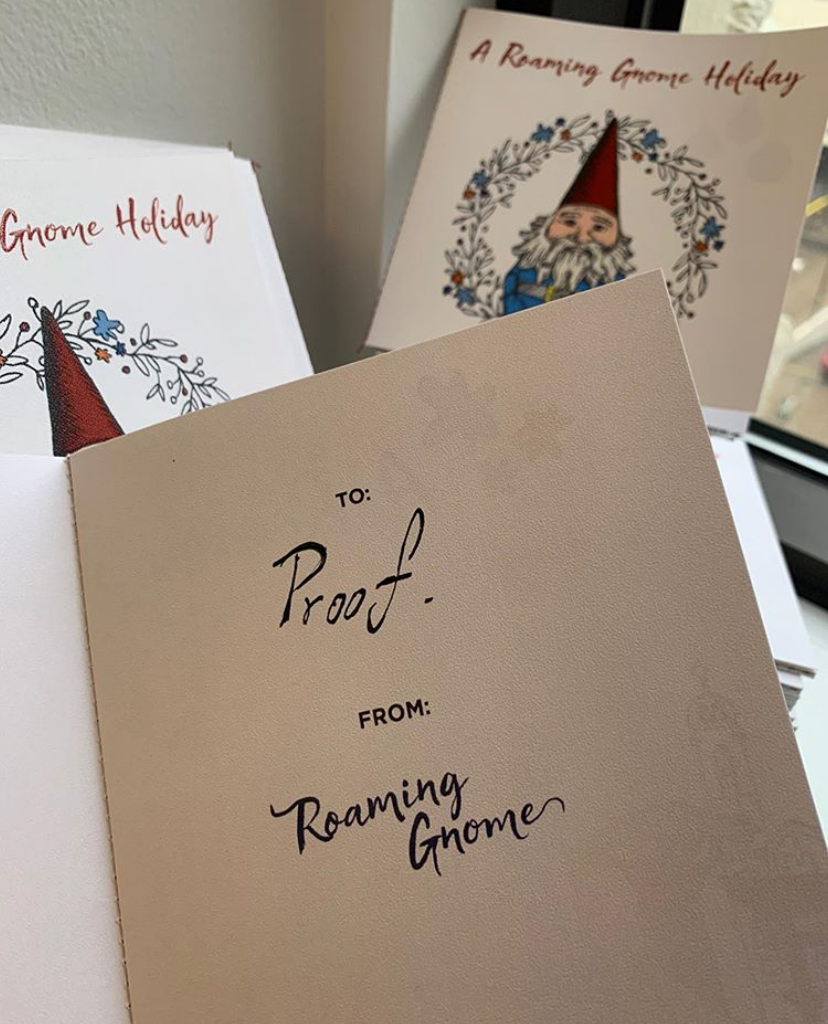 A Roaming Gnome Holiday
Gnome Holiday
TO:
Proof.
FROM:
Roaming
Gnome